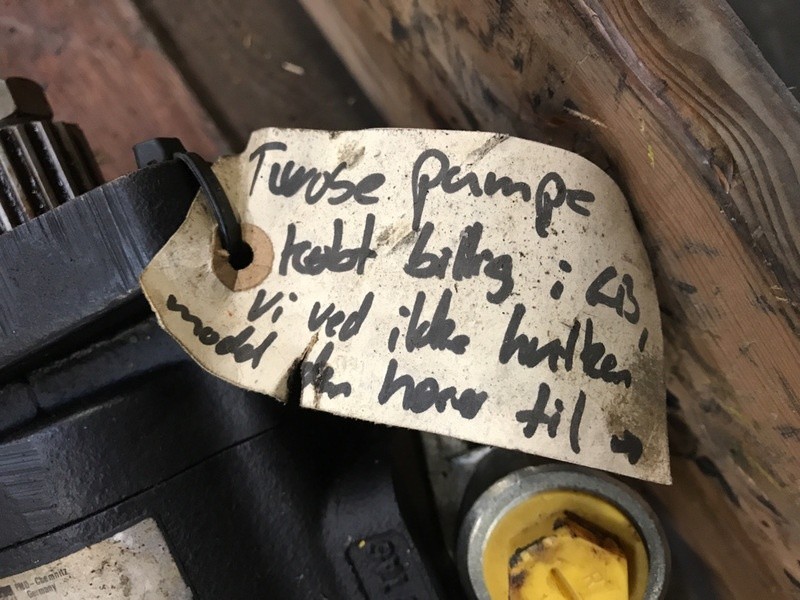 Turose pumpe
købt billig i GB,
vi ved ikke hvilken
modd den hører til
PMD-Chemnitz
Germany